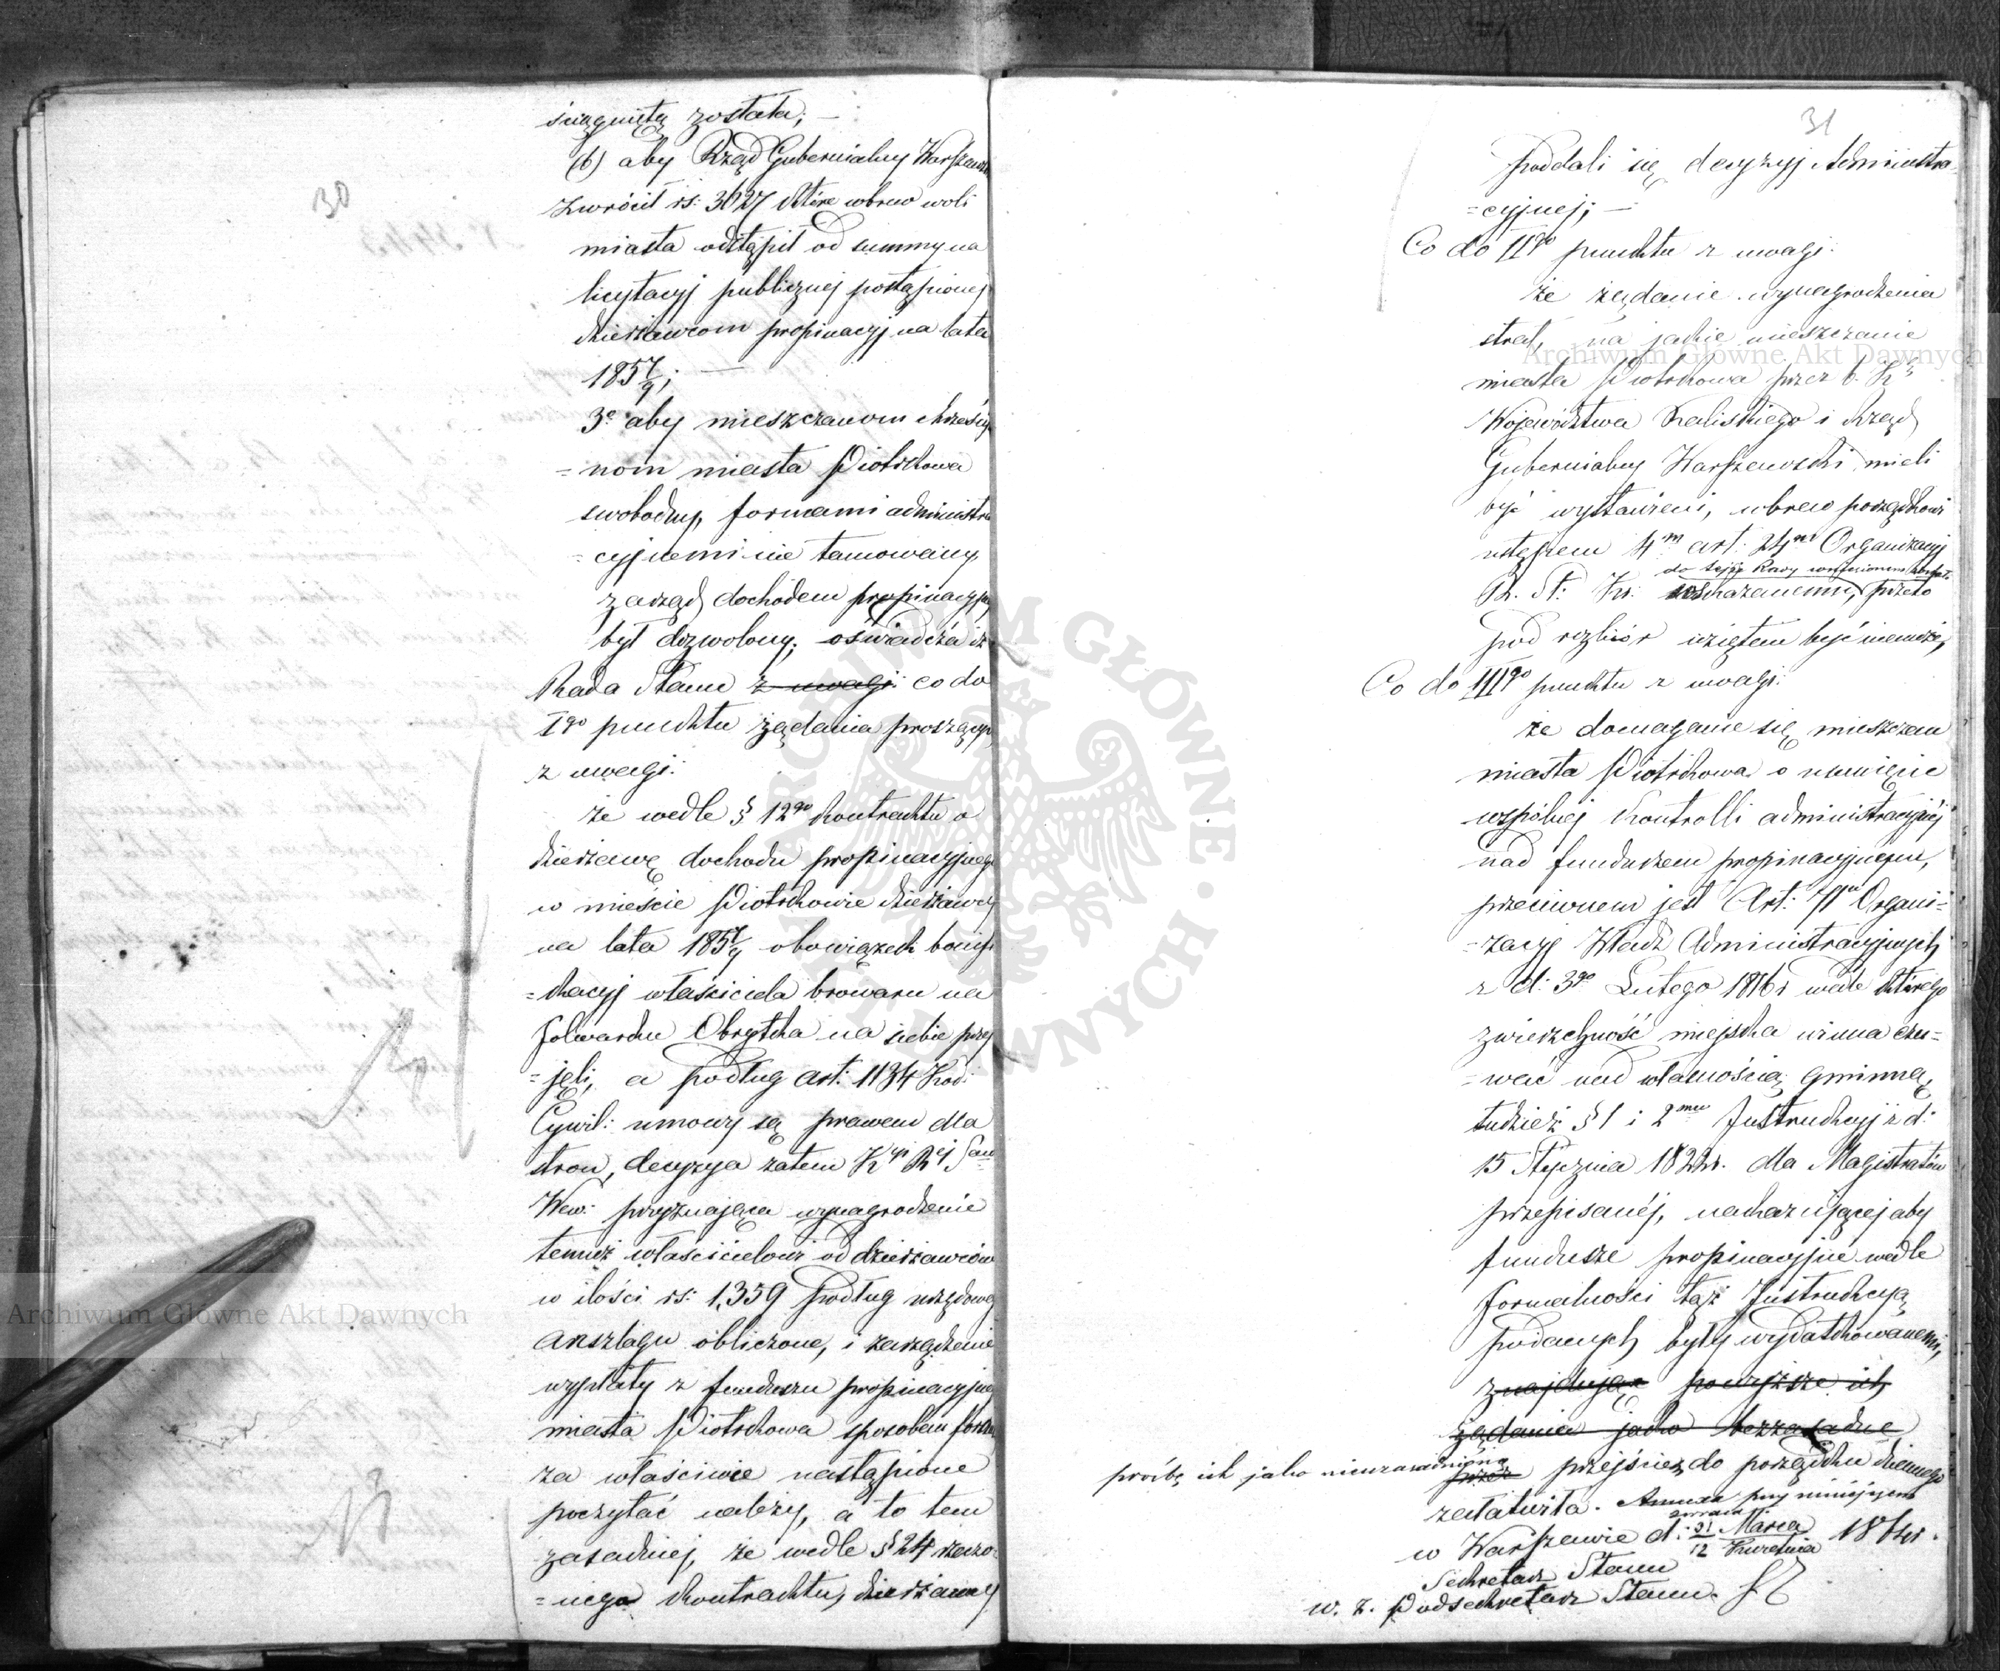 30
ściągniętą została; —
(b) aby Rząd Gubernialny Warszaw
zwrócił rs: 3627 które wbrew woli
miasta odstąpił od summy na
licytacyj publicznej postąpionej
dzierżawcom propinacyj na lata
1857/9; —
3e aby mieszczanom chrześcij
=nom miasta Piotrkowa
swobodny, formami administra
=cyjnemi nie tamowany
zarząd dochodem propinacyjny
był dozwolony; oświadcza iż
Rada Stanu z uwagi: co do
Igo punktu żądania proszących
z uwagi:
że wedle § 12go kontraktu o
dzierżawę dochodu propinacyjnego
w mieście Piotrkowie dzierżawcy
na lata 1857/9 obowiązek bonifi
=kacyj właściciela browaru na
folwarku Obrytka na siebie przy
=jęli, a podług art: 1134 Kod:
Cywil: umowy są prawem dla
stron, decyzya zatem Kyi Rj Saw
Wew: przyznająca wynagrodzenie
temuż właścicielowi od dzierżawców
w ilości rs: 1,359 podług urzędowego
anszlagu obliczone, i zarządzenie
wypłaty z funduszu propinacyjnego
miasta Piotrkowa sposobem
za właściwie nastąpione
poczytać należy, a to tem
zasadniej, że wedle § 24 rzeczo
=nego kontraktu, dzierżawcy
31
poddali się decyzyj Administra
=cyjnej; —
Co do IIgo punktu z uwagi:
że żądanie wynagrodzenia
strat, na jakie mieszczanie
miasta Piotrkowa przez b. K
Województwa Kaliskiego i Rząd
Gubernialny Warszawski mieli
być wystawieni, wbrew porządkowi
ustępem 4m art: 24m Organizacyj
do tejże Rady wniesionem
R. St: Kr: wskazanemu, przeto
pod rozbiór wziętem być niemoże,
Co do IIIgo punktu z uwagi:
że domaganie się mieszczan
miasta Piotrkowa o usunięcie
wspólnej kontrolli administracyjnej
nad funduszem propinacyjnym,
przeciwnem jest Art: Organi=
=zacyj Władz Administracyjnych
z d: 3go Lutego 1816 r wedle którego
zwierzchność miejska winna czu=
=wać nad własnością gminną,
tudzież § 1 i 2mu Instrukcyj z d:
15 Stycznia 182 r. dla Magistratów
przepisanéj, nakazującej aby
fundusze propinacyjne wedle
formalności taż Instrukcyą
podanych były wydatkowanemi,
znajduje powyższe ich
żądania jako bezzasadne
prośbę ich jako nieuzasadnioną
przez przejście do porządku dziennego
załatwiła. Annexa przy niniejszem
zwraca
w Warszawie d: 31 Marca 186 r.
12 Kwietnia
Sekretarz Stanu
w. z. Podsekretarz Stanu.
Archiwum Główne Akt Dawnych
Archiwum Główne Akt Dawnych
ARCHIWUM GŁÓWNE AKT DAWNYCH